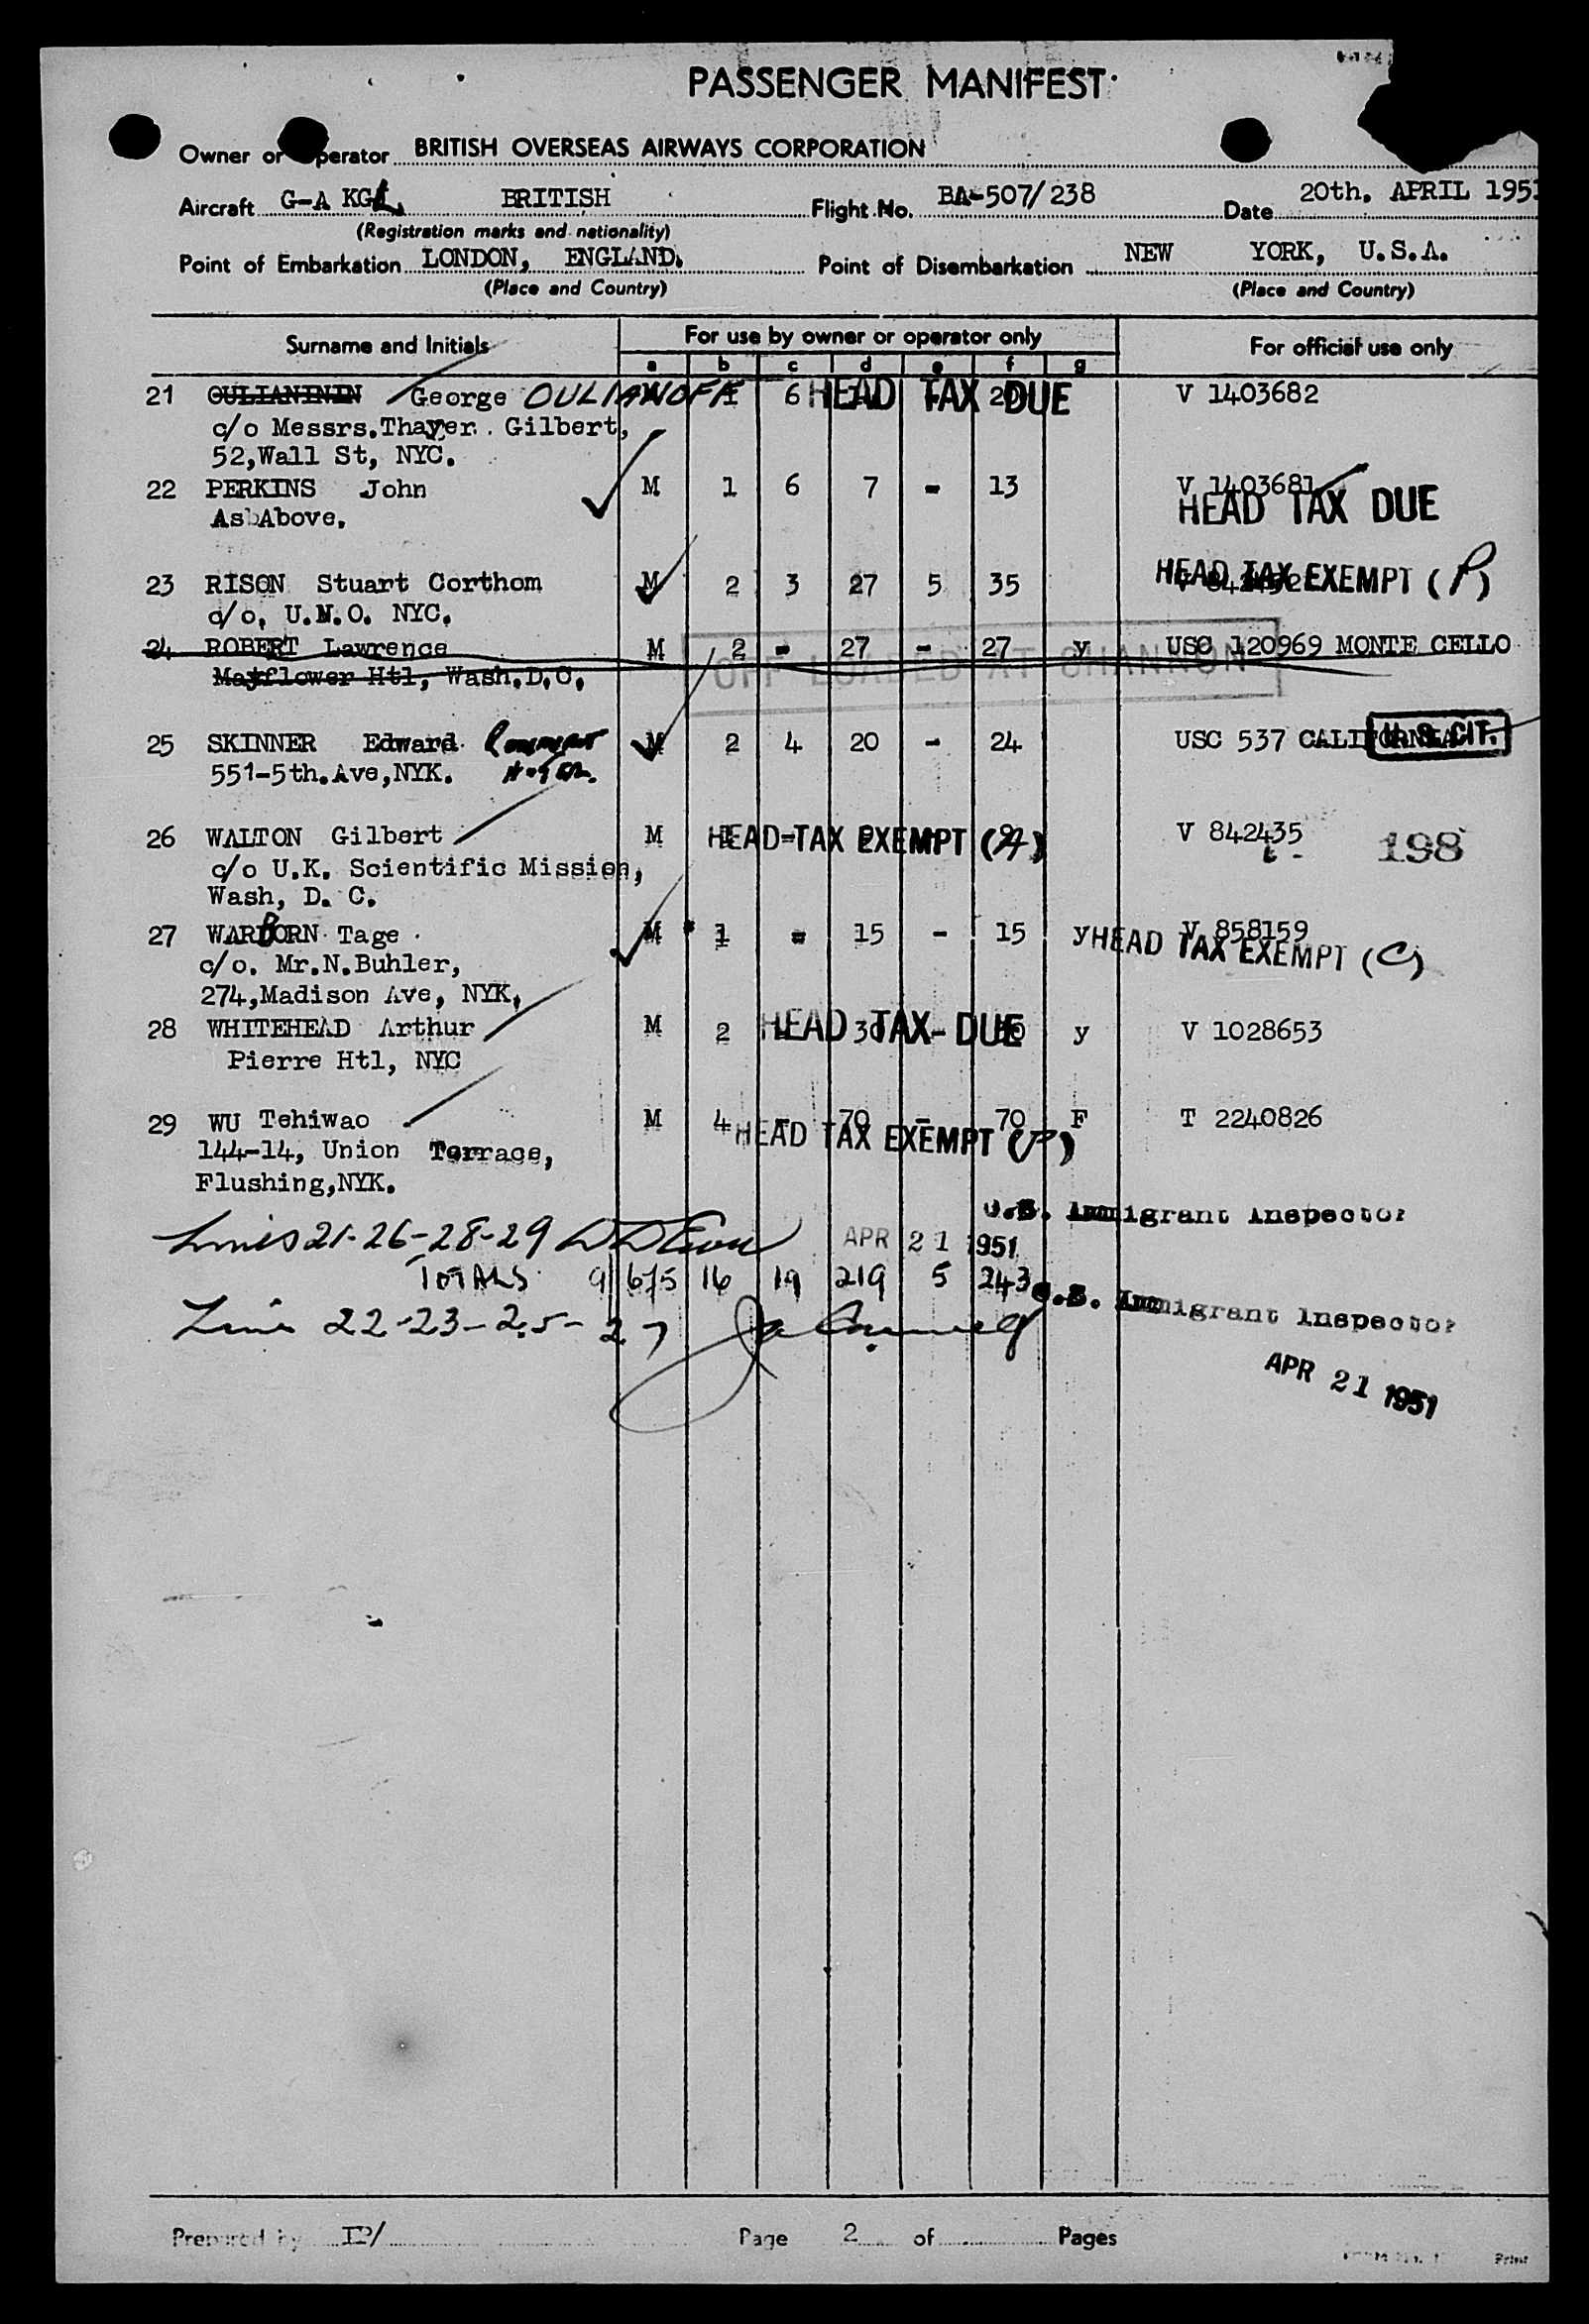 PASSENGER MANIFEST
Owner or Operator BRITISH OVERSEAS AIRWAYS CORPORATION
Aircraft G-A KGL BRITISH Flight No. BA-507/238 Date 20th. APRIL 1951
(Registration marks and nationality)
Point of Embarkation LONDON, ENGLAND. Point of Disembarkation NEW YORK, U.S.A.
(Place and Country) (Place and Country)
Surname and Initials For use by owner or operator only For official use only
a b c d e f g
21 OULIANININ George OULIANOFF 1 6 HEAD TAX DUE V 1403682
c/o Messrs.Thayer. Gilbert,
52,Wall St, NYC.
22 PERKINS John M 1 6 7 - 13 V 1403681
AsbAbove. HEAD TAX DUE
23 RISON Stuart Corthom M 2 3 27 5 35 HEAD TAX EXEMPT (P)
c/o, U.N.O. NYC.
24 ROBERT Lawrence M 2 - 27 - 27 y USC 120969 MONTE CELLO
Mayflower Htl, Wash.D.C. OFF LOADED AT SHANNON
25 SKINNER Edward M 2 4 20 - 24 USC 537 CALIFORNIA U.S. CIT.
551-5th.Ave,NYK.
26 WALTON Gilbert M HEAD TAX EXEMPT V 842435 198
c/o U.K. Scientific Mission,
Wash, D. C.
27 WARBORN Tage M 1 - 15 - 15 y V 858159
c/o. Mr.N.Buhler, HEAD TAX EXEMPT (C)
274,Madison Ave, NYK,
28 WHITEHEAD Arthur M 2 - 30 - HEAD TAX DUE y V 1028653
Pierre Htl, NYC
29 WU Tehiwao M 4 - 70 - 70 F T 2240826
144-14, Union Terrace, HEAD TAX EXEMPT
Flushing,NYK.
U.S. Immigrant Inspector
Lines 21-26-28-29 APR 21 1951
TOTALS 9 675 16 19 219 5 243
U.S. Immigrant Inspector
Line 22-23-25-27
APR 21 1951
Prepared by IP/ Page 2 of Pages
Print